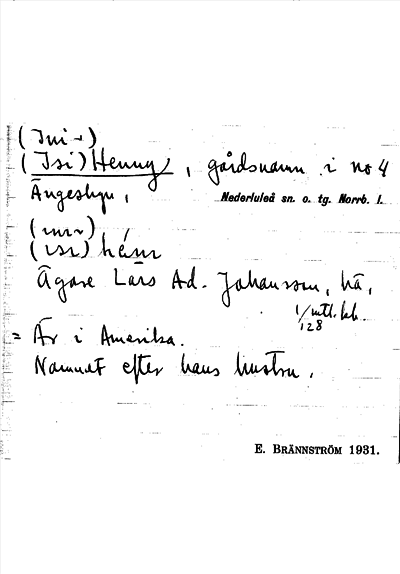 (Ini-)
(Isi) Henny, gårdsnamn i no 4
Ängesbyn, Nederluleå sn. o. tg. Norrb. l.
Ägare Lars Ad. Johansson, hä,
1/128 mtl.
= Är i Amerika.
Namnet efter hans hustru.
E. BRÄNNSTRÖM 1931.